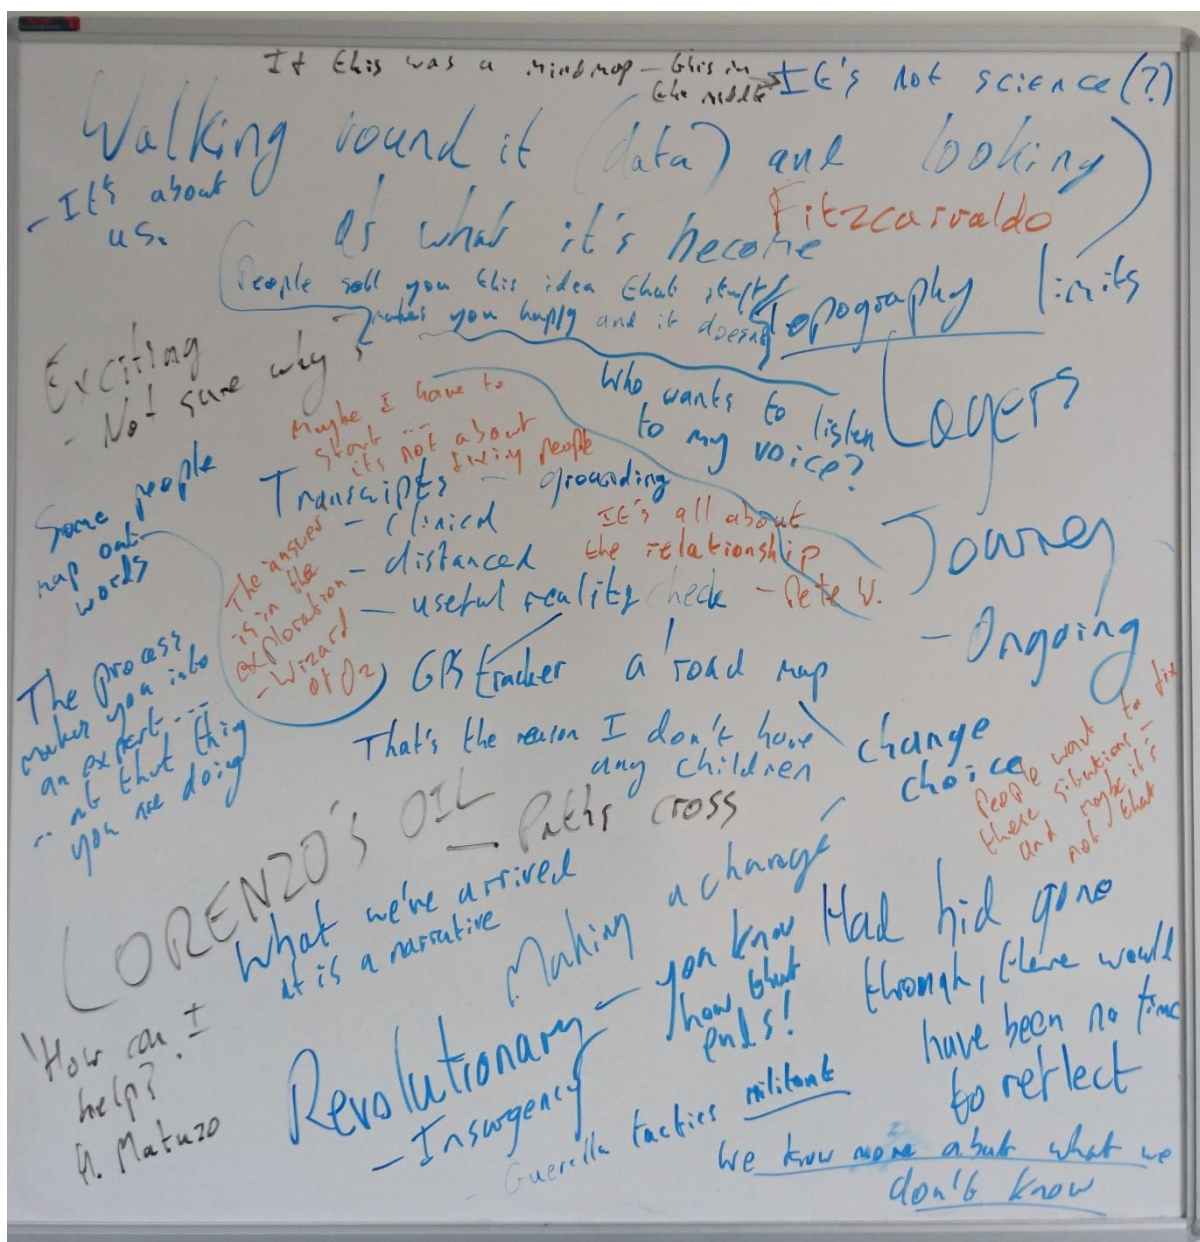 If this was a mindmap – this in
the middle
It's not science (?)
Walking round it (data) and looking
at what it's become
- It's about
us.
Fitzcarraldo
limits
People sell you this idea that stuff
makes you happy and it doesn't
Topography
Exciting
- Not sure why?
Layers
Who wants to listen
to my voice?
Maybe I have to
start ...
its not about
fixing people
Some people
map out
words
Transcipts - grounding
- clinical
- distanced
- useful reality check
It's all about
the relationship
- Pete W.
The answer
is in the
exploration
- Wizard
of Oz
Journey
- Ongoing
GPS tracker a road map
The process
makes you into
an expert....
... at that thing
you are doing
That's the reason I don't have
any children
change
choice
People want to fix
these situations -
and maybe it's
not that
LORENZO'S OIL
- Paths cross
What we've arrived
at is a narrative
Making a change
Had bid gone
through, there would
have been no time
to reflect
Revolutionary - you know
how that
ends!
- Insurgency
- Guerilla tactics militant
'How can I
help?'
H. Matuzo
We know more about what we
don't know